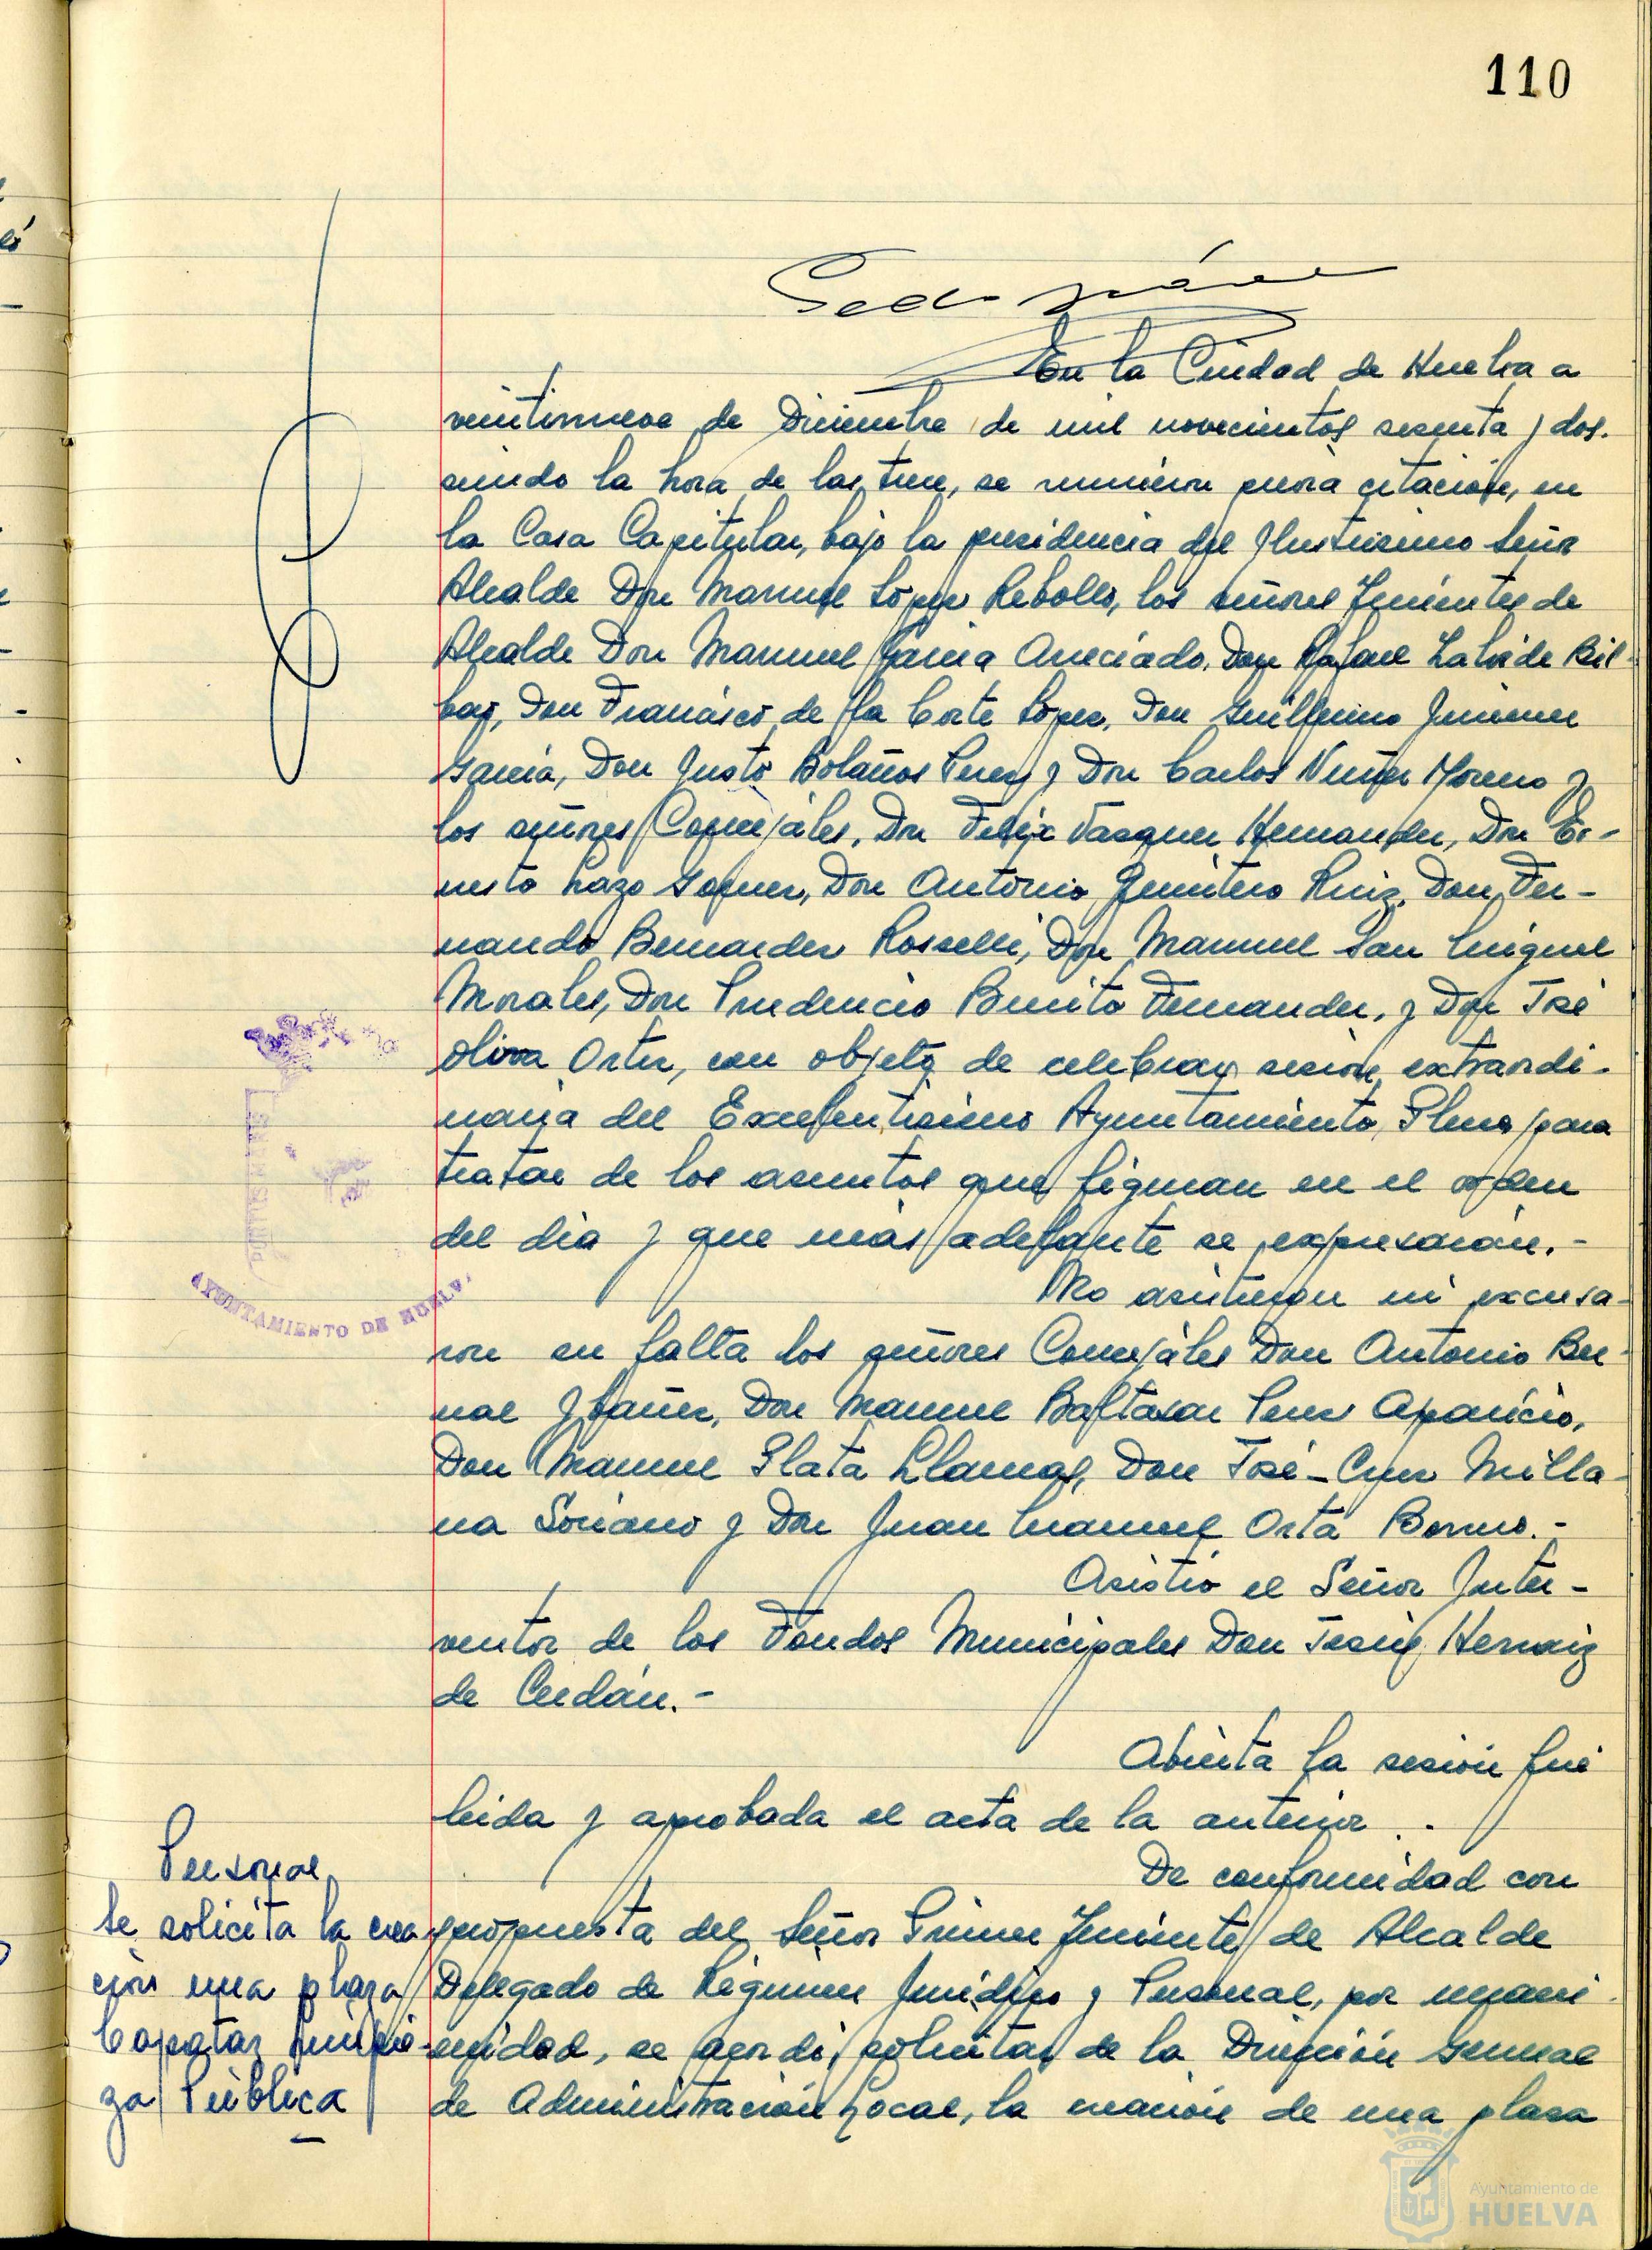 110
En la Ciudad de Huelva a
veintinueve de Diciembre de mil novecientos sesenta y dos.
siendo la hora de las trece, se reunieron previa citación, en
la Casa Capitular, bajo la presidencia del Ilustrisimo Señor
Alcalde Don Manuel López Rebollo, los señores Tenientes de
Alcalde Don Manuel Garcia Aneciado, Don Rafael Lalvide Bil-
bao, Don Francisco de la Corte López, Don Guillermo Jimenez
Garcia, Don Justo Bolaños Perez y Don Carlos Nuñez Moreno y
los señores Concejáles, Don Felix Vazquez Hernandez, Don Er-
nesto Lazo Gomez, Don Antonio Quintero Ruiz, Don Fer-
nando Bernardez Rosselli, Don Manuel San Miguel
Morales, Don Prudencio Benito Fernandez, y Don José
Oliva Ortiz, con objeto de celebrar sesión extraordi-
naria del Excelentisimo Ayuntamiento Pleno para
tratar de los asuntos que figuran en el orden
del dia y que más adelante se expresarán.-
No asistieron ni excusa-
ron su falta los señores Concejáles Don Antonio Ber-
nal Ybañez, Don Manuel Baltasar Perez Aparicio,
Don Manuel Plata Llamas, Don José-Cruz Milla-
na Soriano y Don Juan Manuel Orta Borrero.-
Asistió el Señor Inter-
ventor de los Fondos Municipales Don Jesús Hernaiz
de Cerdán.-
Abierta la sesión fué
leida y aprobada el acta de la anterior.-
De conformidad con
propuesta del Señor Primer Teniente de Alcalde
Delegado de Régimen Juridico y Personal, por unani-
midad, se acordó, solicitar de la Dirección General
de Administración Local, la creación de una plaza
Personal
Se solicita la crea
ción una plaza
Capataz Limpie-
za Pública
AYUNTAMIENTO DE HUELVA
Ayuntamiento de
HUELVA